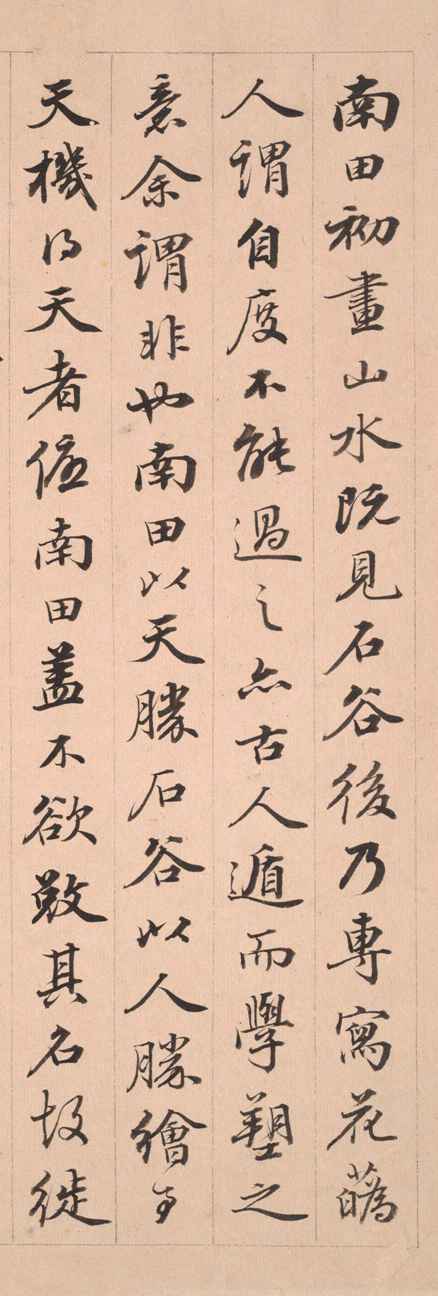 南田初畫山水既見石谷後乃專寫花蘤
人謂自度不能過之亦古人遁而學塑之
意余謂非也南田以天勝石谷以人勝繪事
天機得天者優南田蓋不欲敵其名故徙